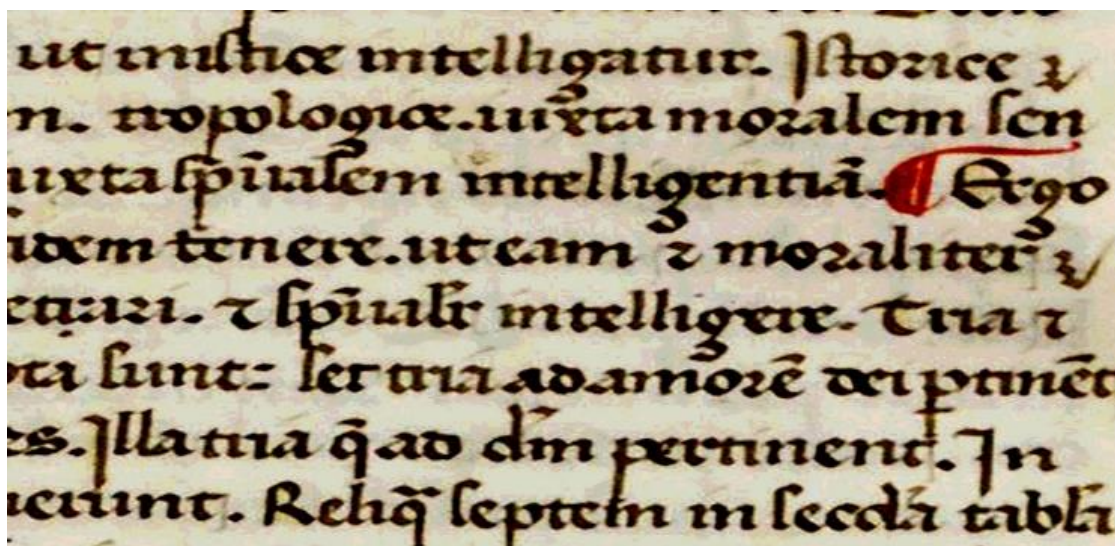 ut mistice intelligatur. Istorice
n. tropologice. iuxta moralem sen
iuxta sp̄ualem intelligentiā. ¶ Ergo
idem tenere. ut eam ⁊ moraliter
⁊ sp̄ualr̄ intelligere. Tria ⁊
sunt: set tria ad amorē dei ꝑtinēt
es. Illa tria q̄ ad dm̄ pertinent. In
uerunt. Reliq̄ septem in secc̄dā tabl̄a